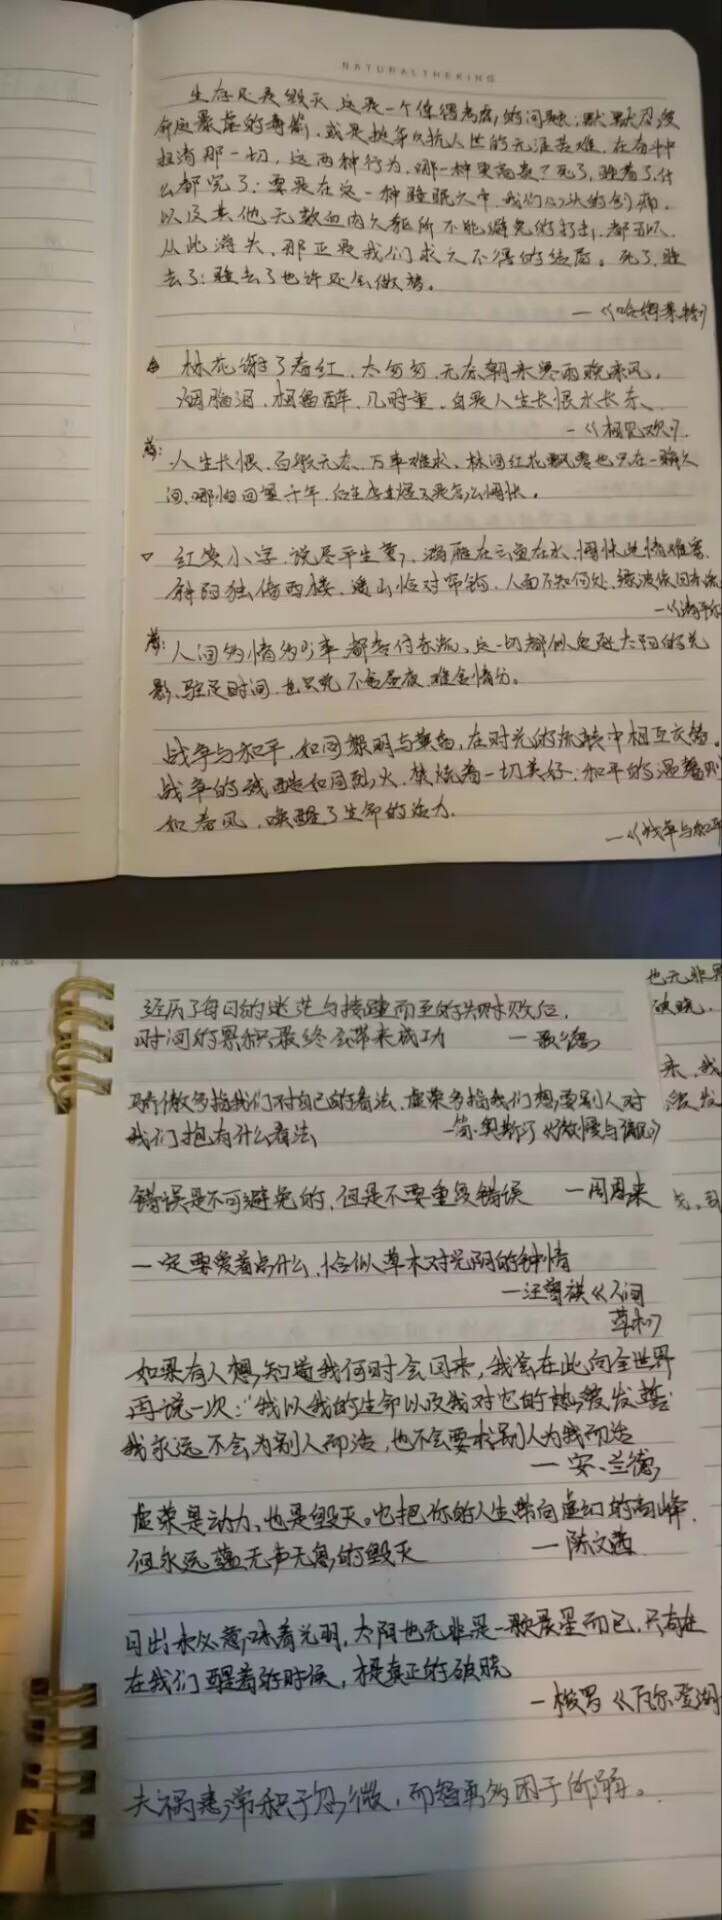 NATURALTHEKING
生存还是毁灭,这是一个值得考虑的问题;默默忍受
命运暴虐的毒箭,或是挺身反抗人世的无涯苦难,在奋斗中
扫清那一切,这两种行为,哪一种更高贵?死了,睡着了,什
么都完了;要是在这一种睡眠之中,我们心头的创痛,
以及其他无数血肉之躯所不能避免的打击,都可以
从此消失,那正是我们求之不得的结局。死了,睡
去了;睡去了也许还会做梦。
—《哈姆莱特》
林花谢了春红,太匆匆,无奈朝来寒雨晚来风。
胭脂泪,相留醉,几时重,自是人生长恨水长东。
—《相见欢》
人生长恨,百般无奈,万事难求,林间红花飘零也只在一瞬之
间,哪怕回望千年,
红笺小字,说尽平生意,鸿雁在云鱼在水,惆怅此情难寄。
斜阳独倚西楼,遥山恰对帘钩,人面不知何处,绿波依旧东流
—《清平乐
人间多情多少事都尽付东流,这一切都似
影,驻足时间,也只是不舍昼夜,难舍情分。
战争与和平,如同黎明与黄昏,在时光的流转中相互交替。
战争的残酷如同烈火,焚烧着一切美好;和平的温馨则
如春风,唤醒了生命的活力。
—《战争与和平
经历了每日的迷茫与接踵而至的失败后,
时间的累积最终会带来成功 —歌德
骄傲多指我们对自己的看法,虚荣多指我们想要别人对
我们抱有什么看法 —简·奥斯汀《傲慢与偏见》
错误是不可避免的,但是不要重复错误 —周恩来
一定要爱着点什么,恰似草木对光阴的钟情
—汪曾祺《人间
草木》
如果有人想知道我何时会回来,我会在此向全世界
再说一次:“我以我的生命以及我对它的热爱发誓:
我永远不会为别人而活,也不会要求别人为我而活
—安·兰德
虚荣是动力,也是毁灭。它把你的人生带向虚幻的高峰,
但永远蕴无声无息的毁灭 —陈文茜
日出未必意味着光明,太阳也无非是一颗晨星而已,只有在
在我们醒着的时候,才是真正的破晓
—梭罗《瓦尔登湖
夫祸患常积于忽微,而智勇多困于所溺。
也无非是
破晓.
来,我